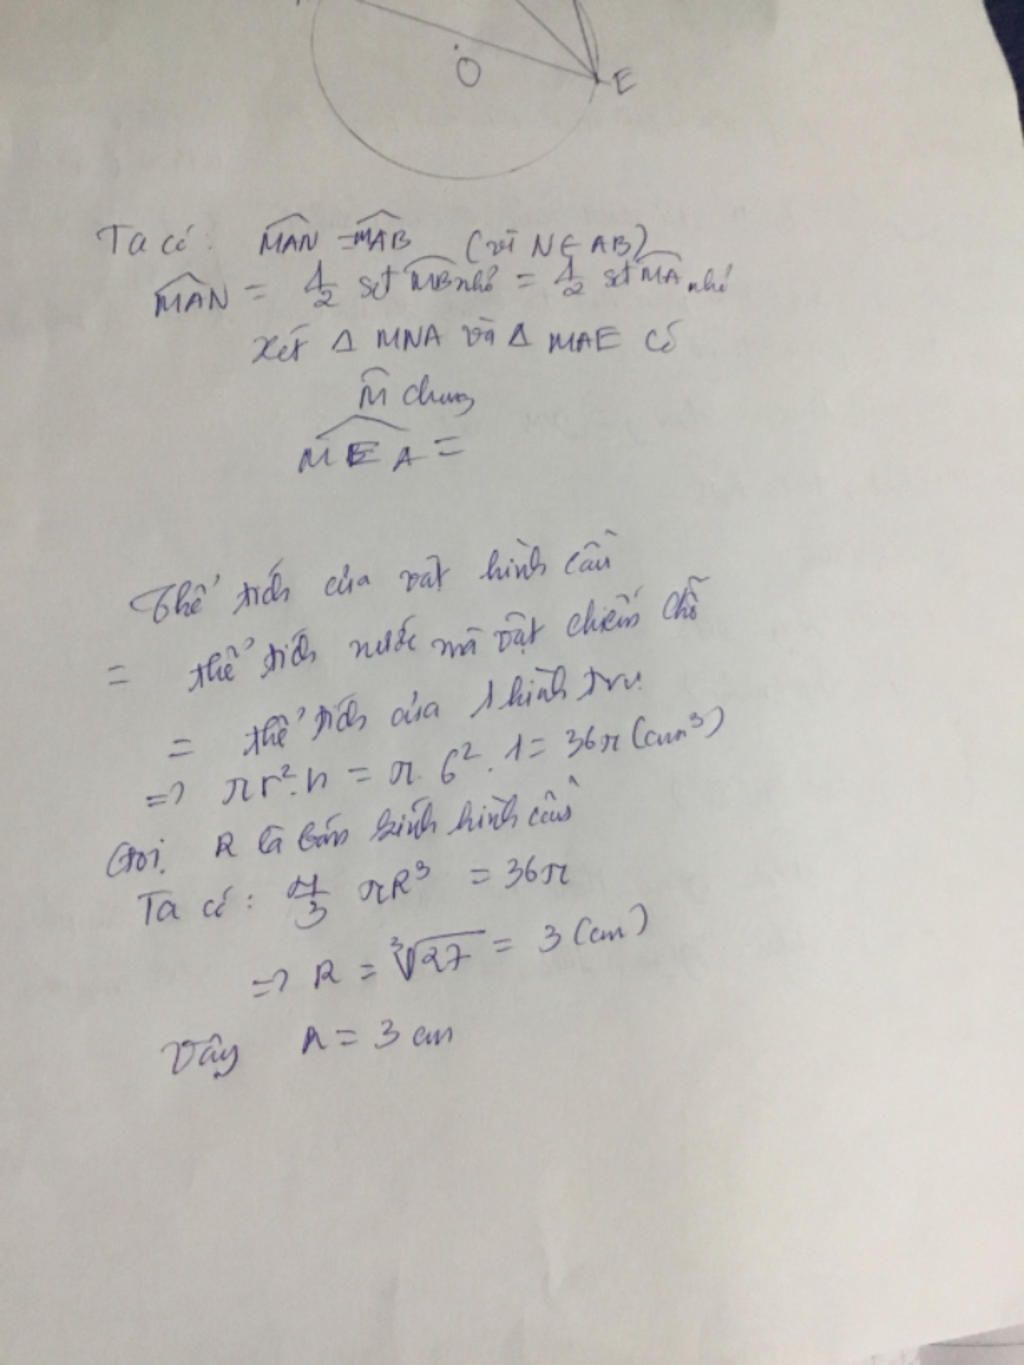 O
E
Ta có: MAN = MAB (vì N ∈ AB)
MAN = 1/2 sđ MB nhỏ = 1/2 sđ MA nhỏ
Xét Δ MNA và Δ MAE có
M chung
MEA =
Thể tích của vật hình cầu
= thể tích nước mà vật chiếm chỗ
= thể tích của 1 hình trụ
=> πr².h = π. 6². 1 = 36π (cm³)
Gọi R là bán kính hình cầu
Ta có: 4/3 πR³ = 36π
=> R = ∛27 = 3 (cm)
Vậy R = 3 cm